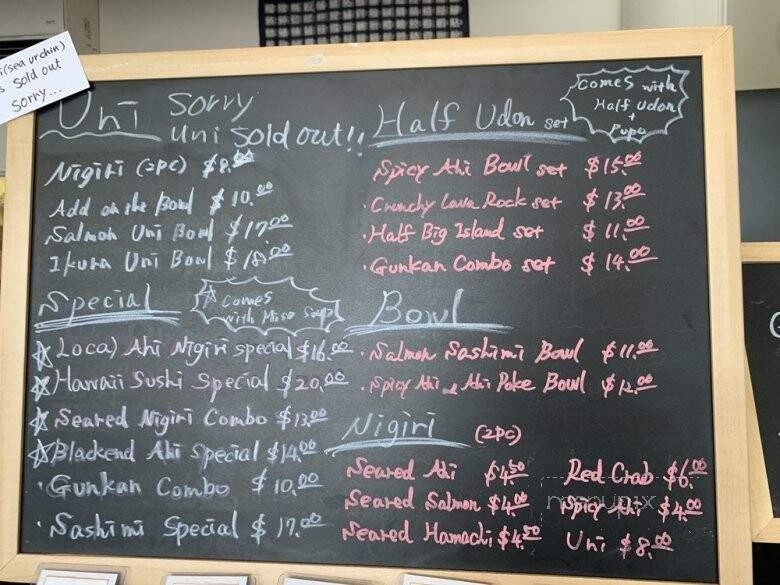 i (sea urchin)
s sold out
sorry...
Uni sorry
uni sold out!!
Nigiri (2pc) $8.00
Add on the Bowl $10.00
Salmon Uni Bowl $17.00
Ikura Uni Bowl $18.00
Special
☆ comes
with Miso soup
☆ Local Ahi Nigiri special $16.00
☆ Hawaii Sushi Special $20.00
☆ Seared Nigiri Combo $13.00
☆ Blackend Ahi Special $14.00
· Gunkan Combo $10.00
· Sashimi Special $17.00
Half Udon set
comes with
Half Udon
+
Pupu
Spicy Ahi Bowl set $15.00
· Crunchy Lava Rock set $13.00
· Half Big Island set $11.00
· Gunkan Combo set $14.00
Bowl
· Salmon Sashimi Bowl $11.00
· Spicy Ahi Ahi Poke Bowl $12.00
Nigiri (2PC)
Seared Ahi $4.50
Seared Salmon $4.00
Seared Hamachi $4.50
Red Crab $6.00
Spicy Ahi $4.00
Uni $8.00
menupix